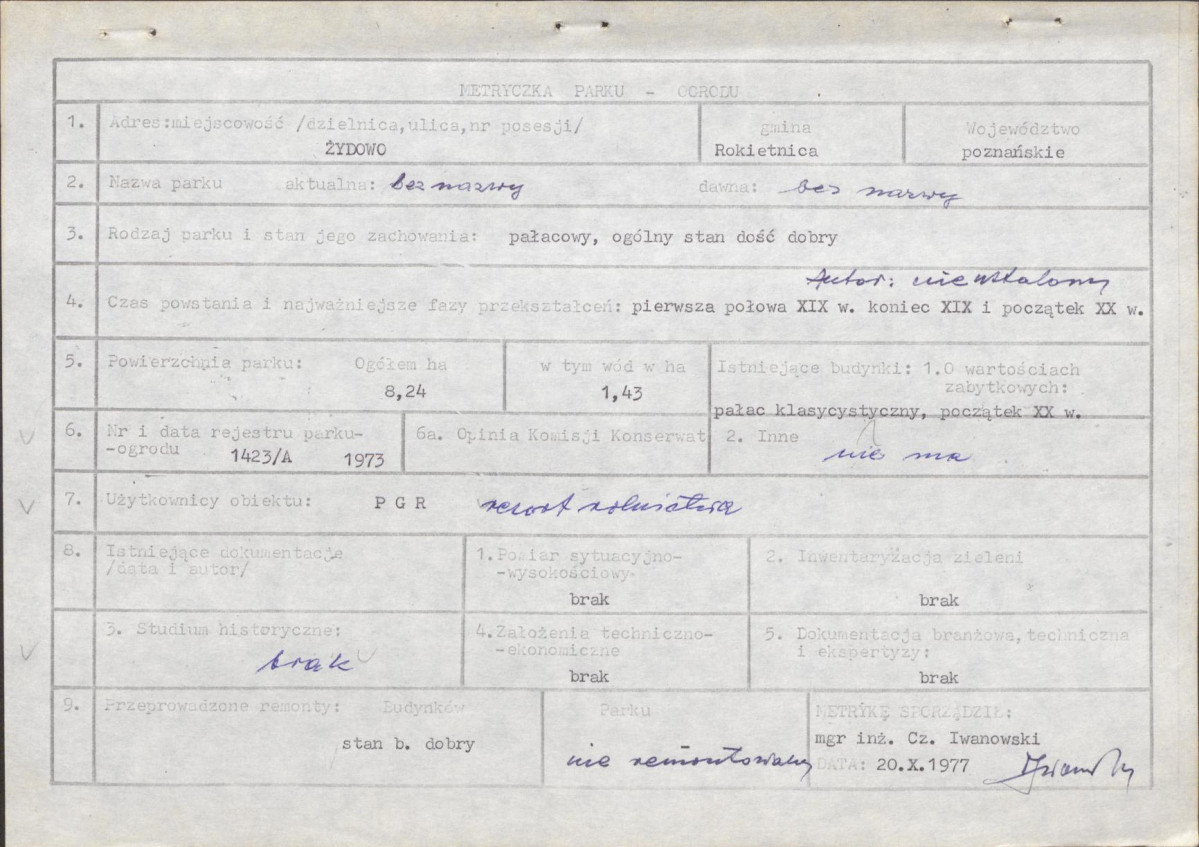 METRYCZKA PARKU - OGRODU
1. Adres:miejscowość /dzielnica,ulica,nr posesji/
ŻYDOWO
gmina
Rokietnica
Województwo
poznańskie
2. Nazwa parku aktualna: bez nazwy dawna: bez nazwy
3. Rodzaj parku i stan jego zachowania: pałacowy, ogólny stan dość dobry
Autor: nieustalony
4. Czas powstania i najważniejsze fazy przekształceń: pierwsza połowa XIX w. koniec XIX i początek XX w.
5. Powierzchnia parku: Ogółem ha
8,24
w tym wód w ha
1,43
Istniejące budynki: 1.O wartościach
zabytkowych:
pałac klasycystyczny, początek XX w.
6. Nr i data rejestru parku-
-ogrodu 1423/A 1973
6a. Opinia Komisji Konserwat
2. Inne
nie ma
7. Użytkownicy obiektu: P G R resort rolnictwa
8. Istniejące dokumentacje
/data i autor/
1.Pomiar sytuacyjno-
-wysokościowy
brak
2. Inwentaryzacja zieleni
brak
3. Studium historyczne:
brak
4.Założenia techniczno-
-ekonomiczne
brak
5. Dokumentacja branżowa, techniczna
i ekspertyzy:
brak
9. Przeprowadzone remonty: Budynków
stan b. dobry
Parku
nie remontowany
METRYKĘ SPORZĄDZIŁ:
mgr inż. Cz. Iwanowski
DATA: 20.X.1977 Iwanowski